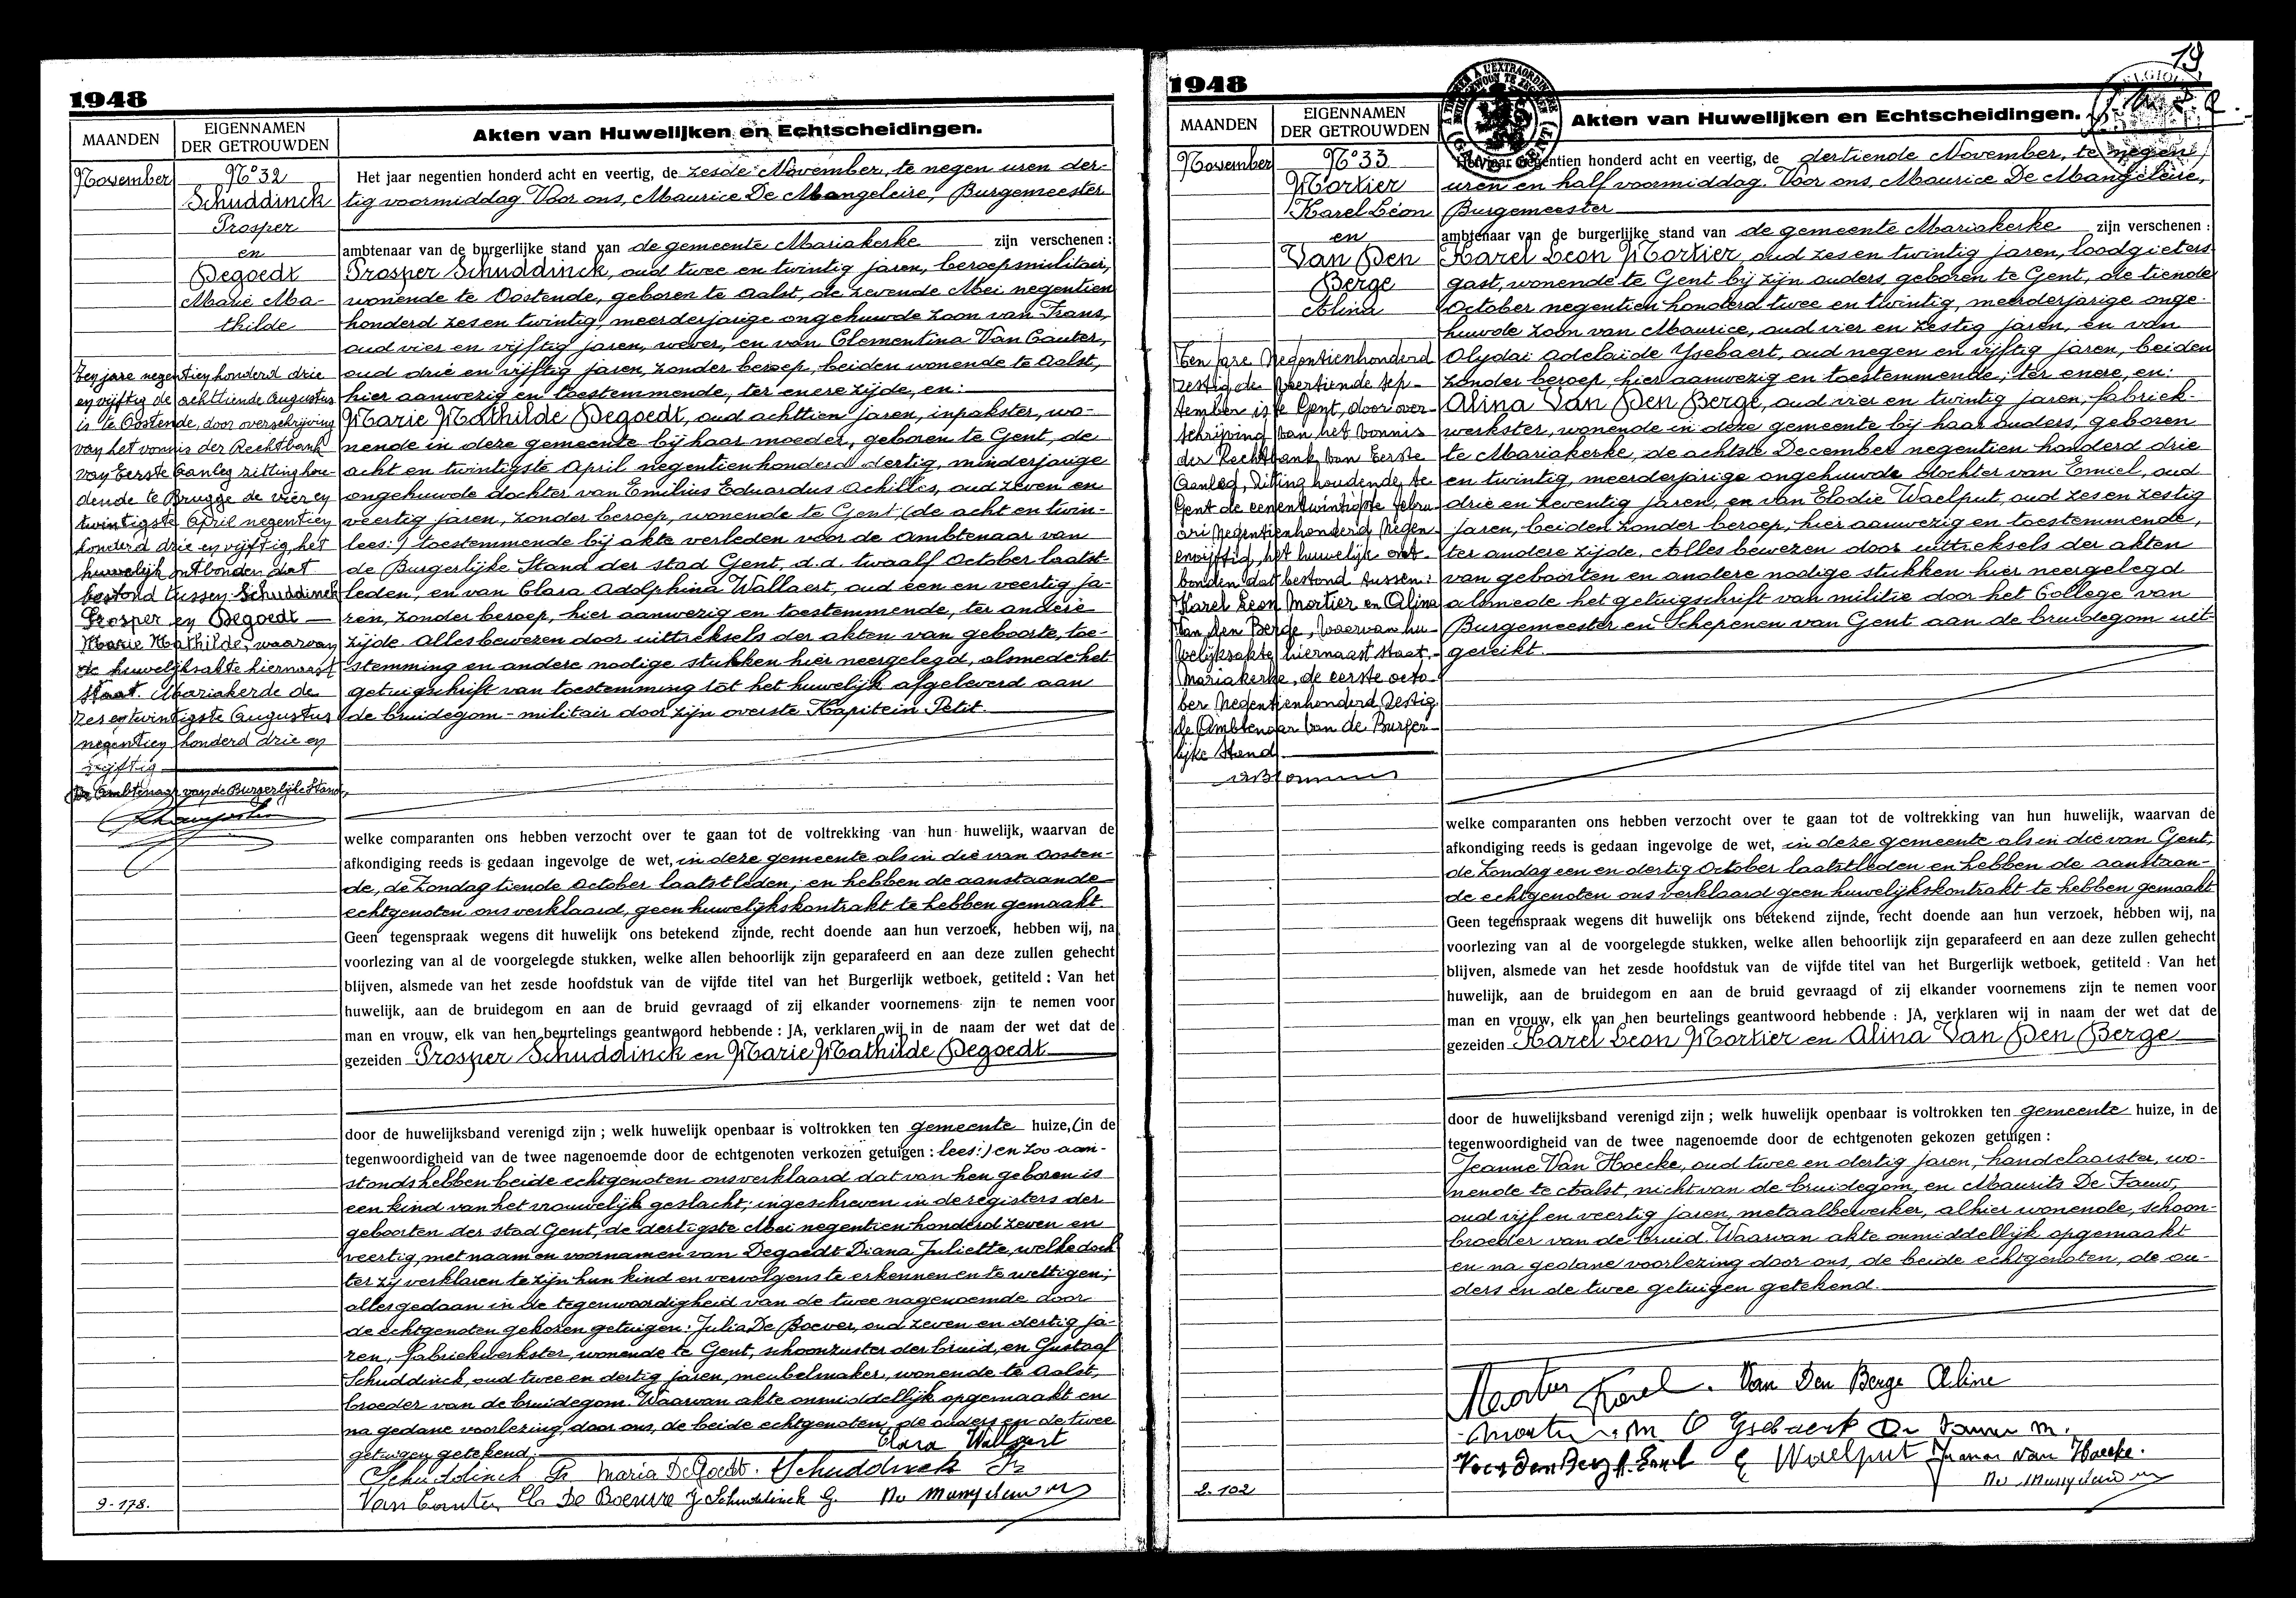 1948
MAANDEN
EIGENNAMEN
DER GETROUWDEN
Akten van Huwelijken en Echtscheidingen.
November
N° 32
Schuddinck
Prosper
en
Degoedt
Marie Ma-
thilde
Ten jare negentien honderd drie
en vijftig de achttiende Augustus
is te Oostende, door overschrijving
van het vonnis der Rechtbank
van Eerste Aanleg zitting hou-
dende te Brugge de vier en
twintigste April negentien
honderd drie en vijftig, het
huwelijk ontbonden dat
bestond tussen Schuddinck
Prosper en Degoedt
Marie Mathilde, waarvan
de huwelijksakte hiernaast
staat. Mariakerke de
zes en twintigste Augustus
negentien honderd drie en
vijftig
De Ambtenaar van de Burgerlijke Stand,
Het jaar negentien honderd acht en veertig, de zesde November, te negen uren der-
tig voormiddag Voor ons, Maurice De Mangeleire, Burgemeester
ambtenaar van de burgerlijke stand van de gemeente Mariakerke zijn verschenen:
Prosper Schuddinck, oud twee en twintig jaren, beroepsmilitair,
wonende te Oostende, geboren te Aalst, de zevende Mei negentien
honderd zes en twintig, meerderjarige ongehuwde zoon van Frans,
oud vier en vijftig jaren, wever, en van Clementina Van Cauter,
oud drie en vijftig jaren, zonder beroep, beiden wonende te Aalst,
hier aanwezig en toestemmende, ter enere zijde, en:
Marie Mathilde Degoedt, oud achttien jaren, inpakster, wo-
nende in deze gemeente bij haar moeder, geboren te Gent, de
acht en twintigste April negentien honderd dertig, minderjarige
ongehuwde dochter van Emilius Eduardus Achilles, oud zeven en
veertig jaren, zonder beroep, wonende te Gent (de acht en twin-
lees:) toestemmende bij akte verleden voor de Ambtenaar van
de Burgerlijke Stand der stad Gent, d.d. twaalf October laatst-
leden, en van Clara Adolphina Wallaert, oud een en veertig ja-
ren, zonder beroep, hier aanwezig en toestemmende, ter andere
zijde. Alles bewezen door uittreksels der akten van geboorte, toe-
stemming en andere nodige stukken hier neergelegd, alsmede het
getuigschrift van toestemming tot het huwelijk afgeleverd aan
de bruidegom-militair door zijn overste Kapitein Petit.
welke comparanten ons hebben verzocht over te gaan tot de voltrekking van hun huwelijk, waarvan de
afkondiging reeds is gedaan ingevolge de wet, in deze gemeente als in die van Oosten-
de, de Zondag tiende October laatstleden; en hebben de aanstaande
echtgenoten ons verklaard, geen huwelijkskontrakt te hebben gemaakt
Geen tegenspraak wegens dit huwelijk ons betekend zijnde, recht doende aan hun verzoek, hebben wij, na
voorlezing van al de voorgelegde stukken, welke allen behoorlijk zijn geparafeerd en aan deze zullen gehecht
blijven, alsmede van het zesde hoofdstuk van de vijfde titel van het Burgerlijk wetboek, getiteld : Van het
huwelijk, aan de bruidegom en aan de bruid gevraagd of zij elkander voornemens zijn te nemen voor
man en vrouw, elk van hen beurtelings geantwoord hebbende : JA, verklaren wij in de naam der wet dat de
gezeiden Prosper Schuddinck en Marie Mathilde Degoedt
door de huwelijksband verenigd zijn ; welk huwelijk openbaar is voltrokken ten gemeente huize, (in de
tegenwoordigheid van de twee nagenoemde door de echtgenoten verkozen getuigen : lees:) en zoo aan-
stonds hebben beide echtgenoten ons verklaard dat van hen geboren is
een kind van het vrouwelijk geslacht; ingeschreven in de registers der
geboorten der stad Gent, de dertigste Mei negentien honderd zeven en
veertig, met naam en voornamen van Degoedt Diana Juliette, welke doch
ter zij verklaren te zijn hun kind en vervolgens te erkennen en te wettigen;
alles gedaan in de tegenwoordigheid van de twee nagenoemde door
de echtgenoten gekozen getuigen: Julia De Boever, oud zeven en dertig ja-
ren, fabriekwerkster, wonende te Gent, schoonzuster der bruid, en Gustaaf
Schuddinck, oud twee en dertig jaren, meubelmaker, wonende te Aalst,
broeder van de bruidegom. Waarvan akte onmiddellijk opgemaakt en
na gedane voorlezing, door ons, de beide echtgenoten, de ouders en de twee
getuigen getekend.
Clara Wallaert
Schuddinck Pr. Maria De Goedt. Schuddinck Fr
Van Cauter Cl. De Boever J Schuddinck G.
9-178.
1948
19
MAANDEN
EIGENNAMEN
DER GETROUWDEN
Akten van Huwelijken en Echtscheidingen.
November
N° 33
Mortier
Karel Léon
en
Van Den
Berge
Alina
Ten jare Negentienhonderd
zestig de veertiende sep-
tember is te Gent, door over-
schrijving van het vonnis
der Rechtbank van Eerste
Aanleg, zitting houdende te
Gent de eenentwintigste febru
ari negentienhonderd negen-
envijftig, het huwelijk ont-
bonden dat bestond tussen:
Karel Leon Mortier en Alina
Van Den Berge, waarvan hu-
welijksakte hiernaast staat.
Mariakerke, de eerste octo-
ber negentienhonderd zestig
de Ambtenaar van de Burger-
lijke Stand
Het jaar negentien honderd acht en veertig, de dertiende November, te negen
uren en half voormiddag. Voor ons, Maurice De Mangeleire,
Burgemeester
ambtenaar van de burgerlijke stand van de gemeente Mariakerke zijn verschenen :
Karel Leon Mortier, oud zes en twintig jaren, loodgieters
gast, wonende te Gent bij zijn ouders, geboren te Gent, de tiende
October negentien honderd twee en twintig, meerderjarige onge-
huwde zoon van Maurice, oud vier en zestig jaren, en van
Olydai Adelaide Ysebaert, oud negen en vijftig jaren, beiden
zonder beroep, hier aanwezig en toestemmende; ter enere, en:
Alina Van Den Berge, oud vier en twintig jaren, fabriek-
werkster, wonende in deze gemeente bij haar ouders, geboren
te Mariakerke, de achtste December negentien honderd drie
en twintig, meerderjarige ongehuwde dochter van Emiel, oud
drie en zeventig jaren, en van Elodie Waelput, oud zes en zestig
jaren, beiden zonder beroep, hier aanwezig en toestemmende,
ter andere zijde. Alles bewezen door uittreksels der akten
van geboorten en andere nodige stukken hier neergelegd
alsmede het getuigschrift van militie door het College van
Burgemeester en Schepenen van Gent aan de bruidegom uit-
gereikt.
welke comparanten ons hebben verzocht over te gaan tot de voltrekking van hun huwelijk, waarvan de
afkondiging reeds is gedaan ingevolge de wet, in deze gemeente als in die van Gent,
de Zondag een en dertig October laatstleden en hebben de aanstaan-
de echtgenoten ons verklaard geen huwelijkskontrakt te hebben gemaakt
Geen tegenspraak wegens dit huwelijk ons betekend zijnde, recht doende aan hun verzoek, hebben wij, na
voorlezing van al de voorgelegde stukken, welke allen behoorlijk zijn geparafeerd en aan deze zullen gehecht
blijven, alsmede van het zesde hoofdstuk van de vijfde titel van het Burgerlijk wetboek, getiteld : Van het
huwelijk, aan de bruidegom en aan de bruid gevraagd of zij elkander voornemens zijn te nemen voor
man en vrouw, elk van hen beurtelings geantwoord hebbende : JA, verklaren wij in de naam der wet dat de
gezeiden Karel Leon Mortier en Alina Van Den Berge
door de huwelijksband verenigd zijn ; welk huwelijk openbaar is voltrokken ten gemeente huize, in de
tegenwoordigheid van de twee nagenoemde door de echtgenoten gekozen getuigen :
Jeanne Van Hoecke, oud twee en dertig jaren, handelaarster, wo-
nende te Aalst, nicht van de bruidegom, en Maurits De Fauw,
oud vijf en veertig jaren, metaalbewerker, alhier wonende, schoon-
broeder van de bruid. Waarvan akte onmiddellijk opgemaakt
en na gedane voorlezing door ons, de beide echtgenoten, de ou-
ders en de twee getuigen getekend.
Mortier Karel. Van Den Berge Aline
Mortier M O Ysebaert De Fauw M.
Van Den Berge Emiel E Waelput Jeanne Van Hoecke.
2.102